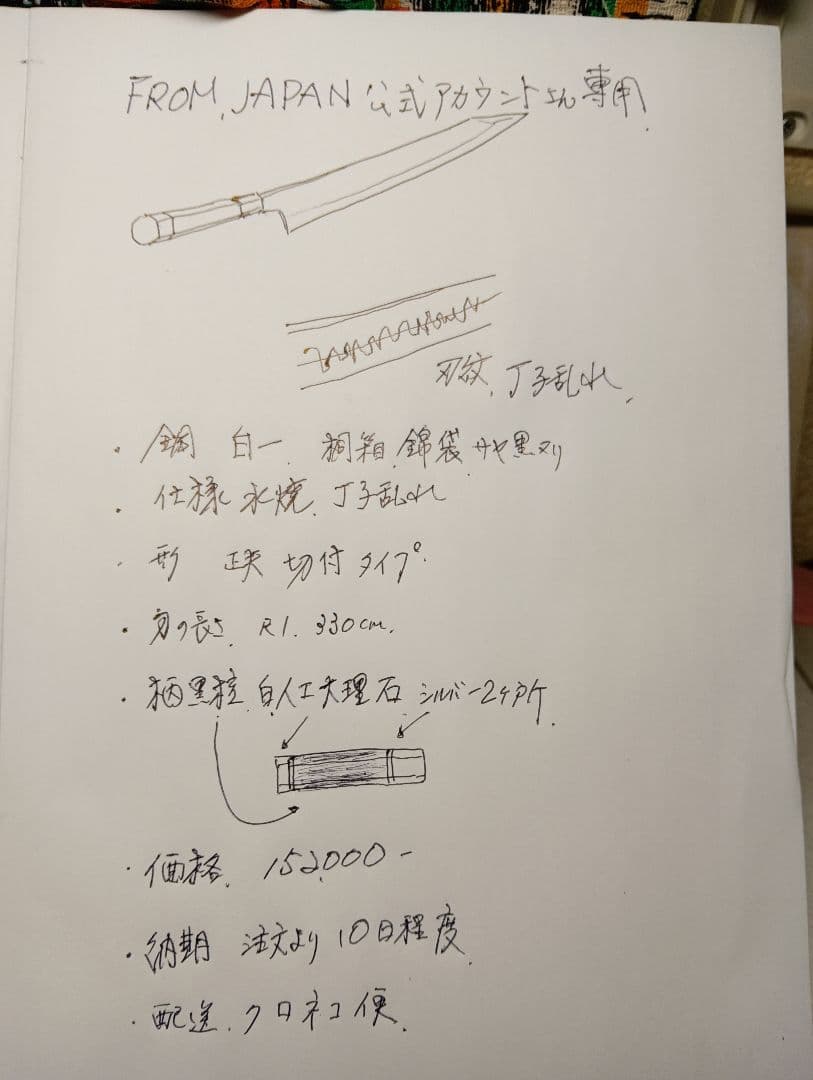 FROM, JAPAN 公式アカウントさん専用
刃紋、丁子乱れ
・鋼 白一 桐箱 錦袋 サヤ黒ヌリ
・仕様 水焼 丁子乱れ
・形 正夫 切付タイプ
・刃の長さ R1. 330cm.
・柄黒檀 白人工大理石 シルバー2ヶ所
・価格 152,000-
・納期 注文より10日程度
・配送 クロネコ便